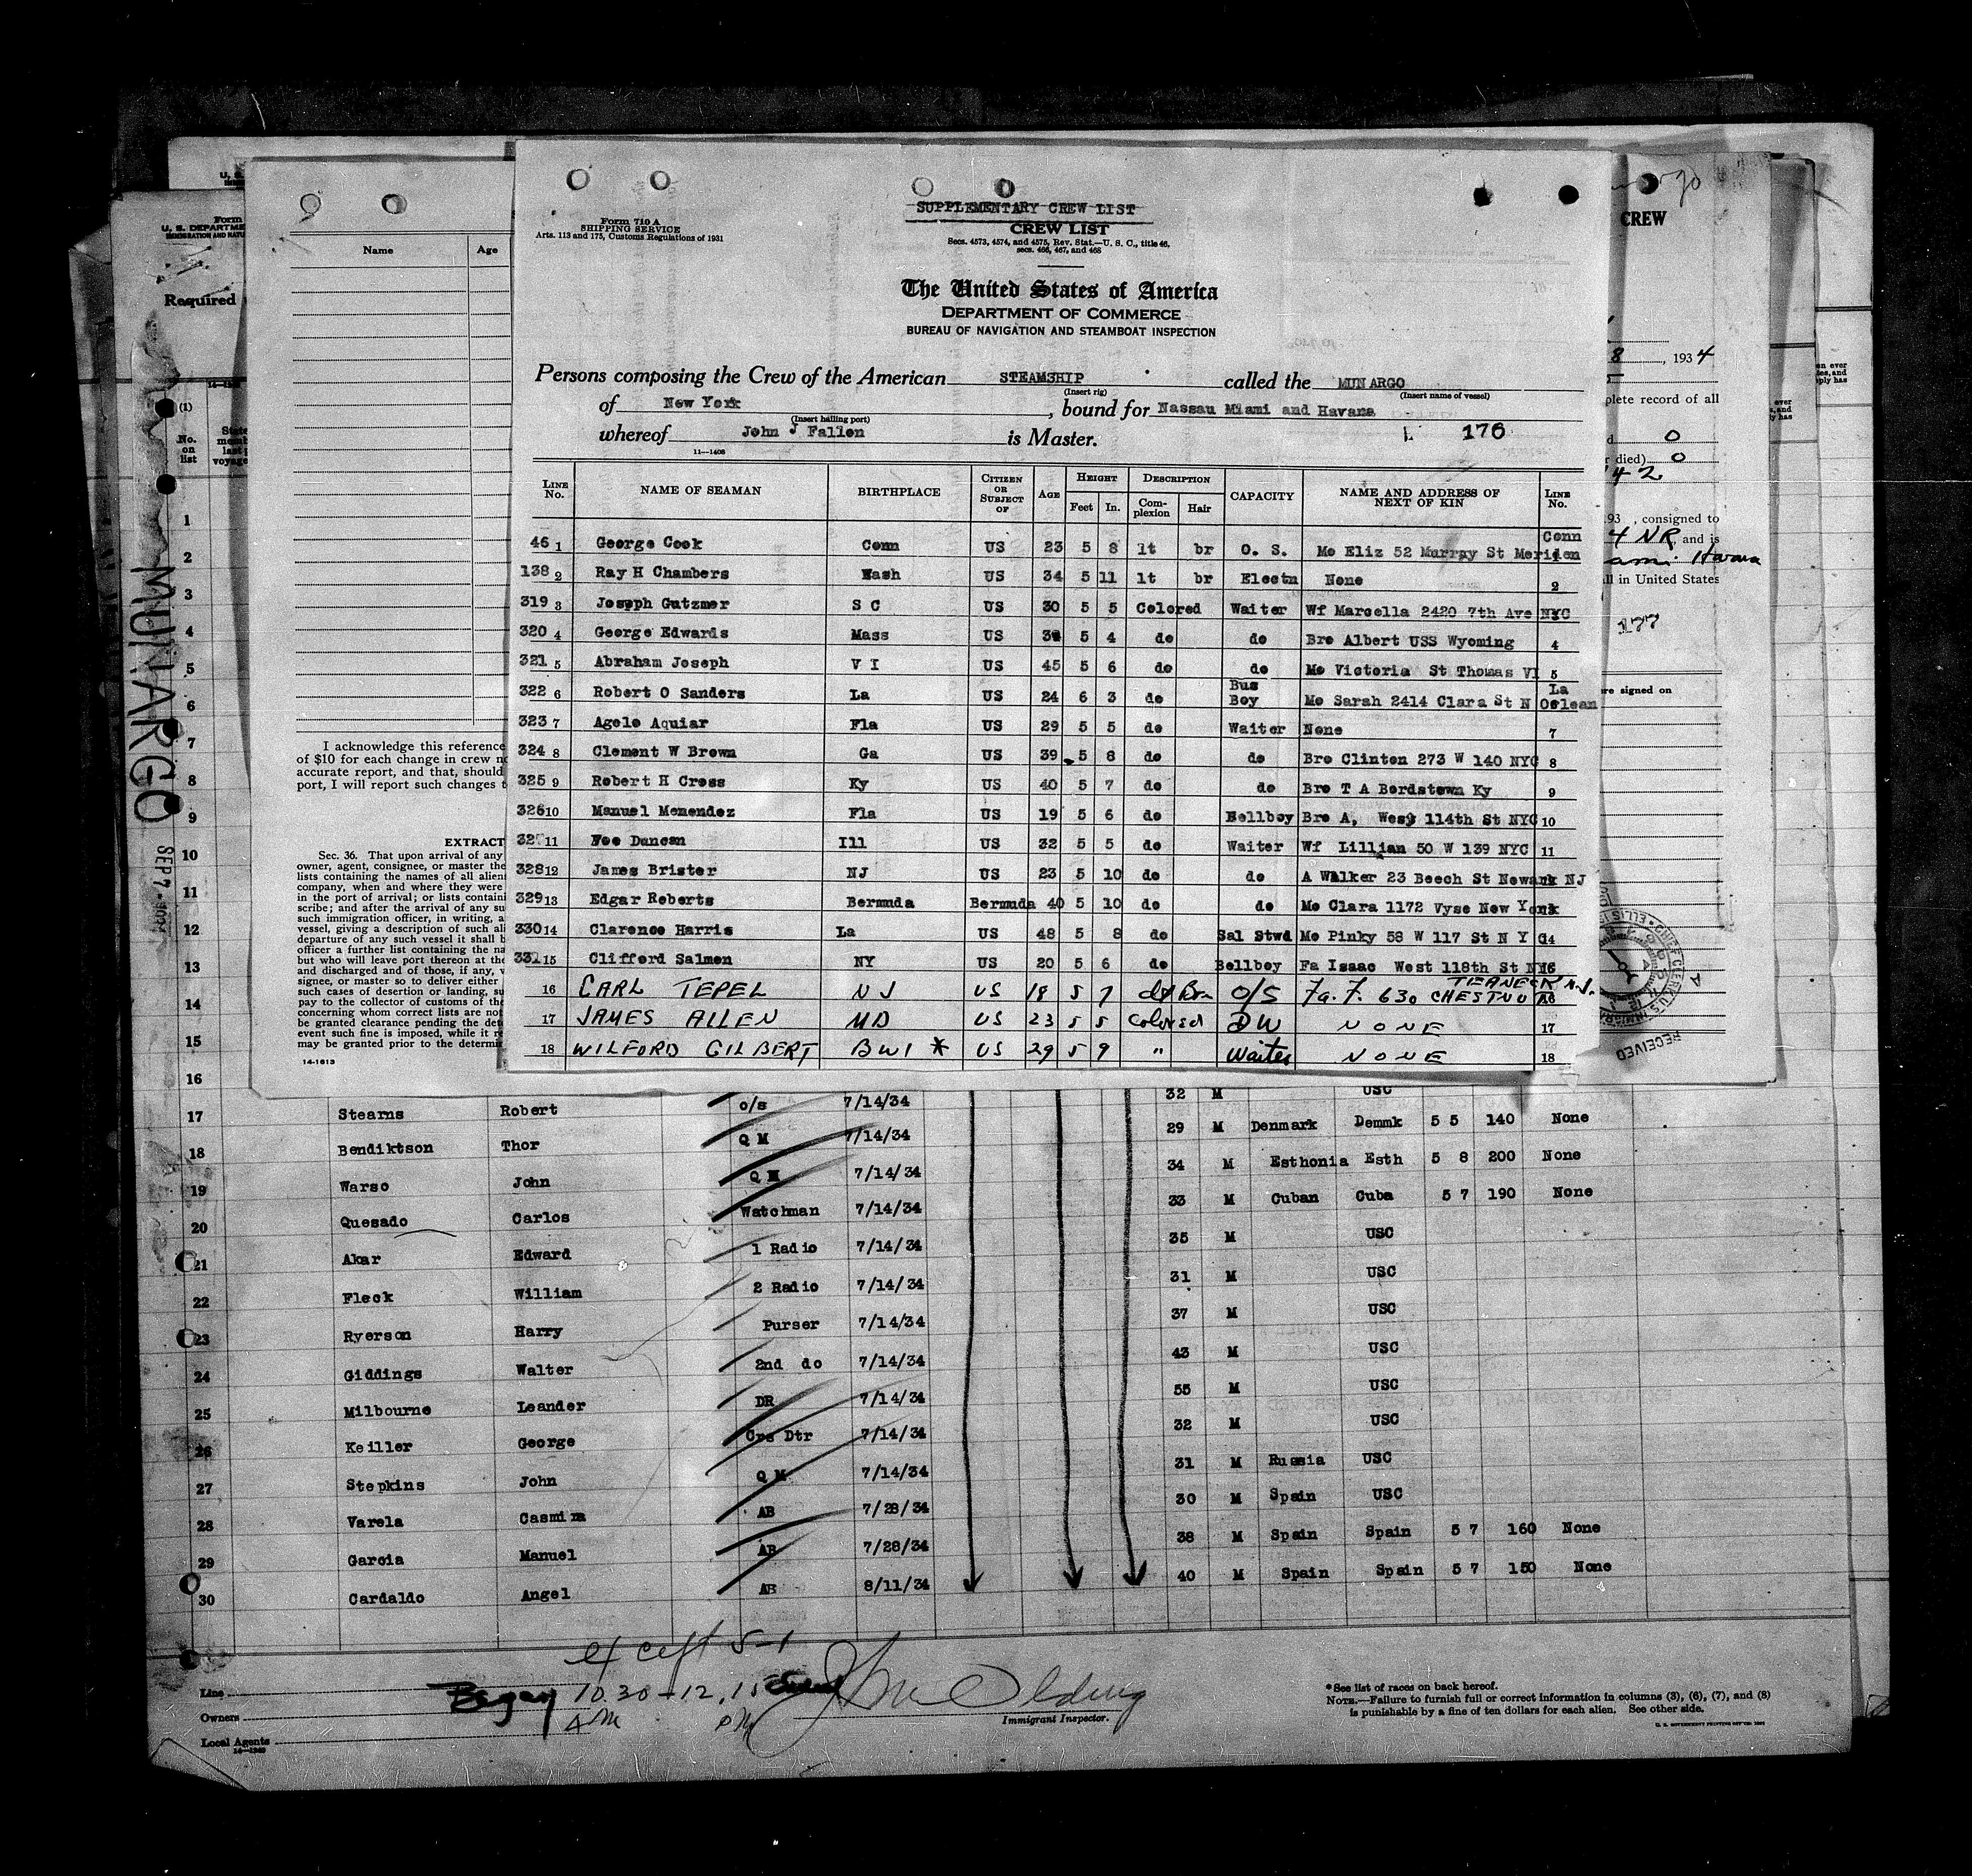 SUPPLEMENTARY CREW LIST
Form 710 A
SHIPPING SERVICE
Arts. 113 and 175, Customs Regulations of 1931
CREW LIST
Secs. 4573, 4574, and 4575, Rev. Stat.—U. S. C., title 46,
secs. 466, 467, and 468
The United States of America
DEPARTMENT OF COMMERCE
BUREAU OF NAVIGATION AND STEAMBOAT INSPECTION
Persons composing the Crew of the American STEAMSHIP called the MUNARGO
(Insert rig) (Insert name of vessel)
of New York, bound for Nassau Miami and Havana
(Insert hailing port)
whereof John J Fallon is Master. 176
11—1408
LINE No. NAME OF SEAMAN BIRTHPLACE CITIZEN OR SUBJECT OF AGE HEIGHT Feet In. DESCRIPTION Complexion Hair CAPACITY NAME AND ADDRESS OF NEXT OF KIN LINE No.
46 1 George Cook Conn US 23 5 8 lt br O. S. Mo Eliz 52 Murray St Meriden Conn 1
138 2 Ray H Chambers Wash US 34 5 11 lt br Electn None 2
319 3 Joseph Gutzmer S C US 30 5 5 Colored Waiter Wf Marcella 2420 7th Ave NYC 3
320 4 George Edwards Mass US 5 4 do do Bro Albert USS Wyoming 4
321 5 Abraham Joseph V I US 45 5 6 do do Mo Victoria St Thomas VI 5
322 6 Robert O Sanders La US 24 6 3 do Bus Boy Mo Sarah 2414 Clara St N Orlean La
323 7 Agelo Aquiar Fla US 29 5 5 do Waiter None 7
324 8 Clement W Brown Ga US 39 5 8 do do Bro Clinton 273 W 140 NYC 8
325 9 Robert H Cross Ky US 40 5 7 do do Bro T A Bordstown Ky 9
326 10 Manuel Menendez Fla US 19 5 6 do Bellboy Bro A, West 114th St NYC 10
32 11 Foe Duncan Ill US 32 5 5 do Waiter Wf Lillian 50 W 139 NYC 11
328 12 James Brister NJ US 23 5 10 do do A Walker 23 Beech St Newark NJ
329 13 Edgar Roberts Bermuda Bermuda 40 5 10 do do Mo Clara 1172 Vyse New York
330 14 Clarence Harris La US 48 5 8 do Sal Stwd Mo Pinky 58 W 117 St N Y C 14
331 15 Clifford Salmon NY US 20 5 6 do Bellboy Fa Isaac West 118th St NYC
16 CARL TEPEL NJ US 18 5 7 Br O/S Fa. F. 630 CHESTNUT TEANECK N.J. 16
17 JAMES ALLEN MD US 23 5 5 Colored DW NONE 17
18 WILFORD GILBERT BWI * US 29 5 9 " Waiter NONE 18
Form
U. S. DEPARTME
IMMIGRATION AND NATU
Required
Name Age
I acknowledge this reference
of $10 for each change in crew
accurate report, and that, should
port, I will report such changes
EXTRACT
Sec. 36. That upon arrival of any
owner, agent, consignee, or master the
lists containing the names of all alien
company, when and where they were
in the port of arrival; or lists containi
scribe; and after the arrival of any su
such immigration officer, in writing, a
vessel, giving a description of such ali
departure of any such vessel it shall b
officer a further list containing the na
but who will leave port thereon at the
and discharged and of those, if any, 
signee, or master so to deliver either
such cases of desertion or landing, su
pay to the collector of customs of the
concerning whom correct lists are not
be granted clearance pending the det
event such fine is imposed, while it r
may be granted prior to the determi
14-1613
CREW
8, 1934
plete record of all
0
died) 0
42
193 , consigned to
4 NR, and is
ami Havana
ll in United States
177
re signed on
RECEIVED
MUNARGO
SEP 7
(1)
No. on list
1
2
3
4
5
6
7
8
9
10
11
12
13
14
15
16 32 M USC
17 Stearns Robert o/s 7/14/34 29 M Denmark Demmk 5 5 140 None
18 Bendiktson Thor Q M 7/14/34 34 M Esthonia Esth 5 8 200 None
19 Warso John Q M 7/14/34 33 M Cuban Cuba 5 7 190 None
20 Quesado Carlos Watchman 7/14/34 35 M USC
21 Akar Edward 1 Radio 7/14/34 31 M USC
22 Fleck William 2 Radio 7/14/34 37 M USC
23 Ryerson Harry Purser 7/14/34 43 M USC
24 Giddings Walter 2nd do 7/14/34 55 M USC
25 Milbourne Leander DR 7/14/34 32 M USC
26 Keiller George Cps Dtr 7/14/34 31 M Russia USC
27 Stepkins John Q M 7/14/34 30 M Spain USC
28 Varela Casmira AB 7/28/34 38 M Spain Spain 5 7 160 None
29 Garcia Manuel AB 7/28/34 40 M Spain Spain 5 7 150 None
30 Cardaldo Angel AB 8/11/34
except 5-1
Began 10.30-12.15
AM PM
Line
Owners
Local Agents
Immigrant Inspector.
*See list of races on back hereof.
NOTE.—Failure to furnish full or correct information in columns (3), (6), (7), and (8)
is punishable by a fine of ten dollars for each alien. See other side.